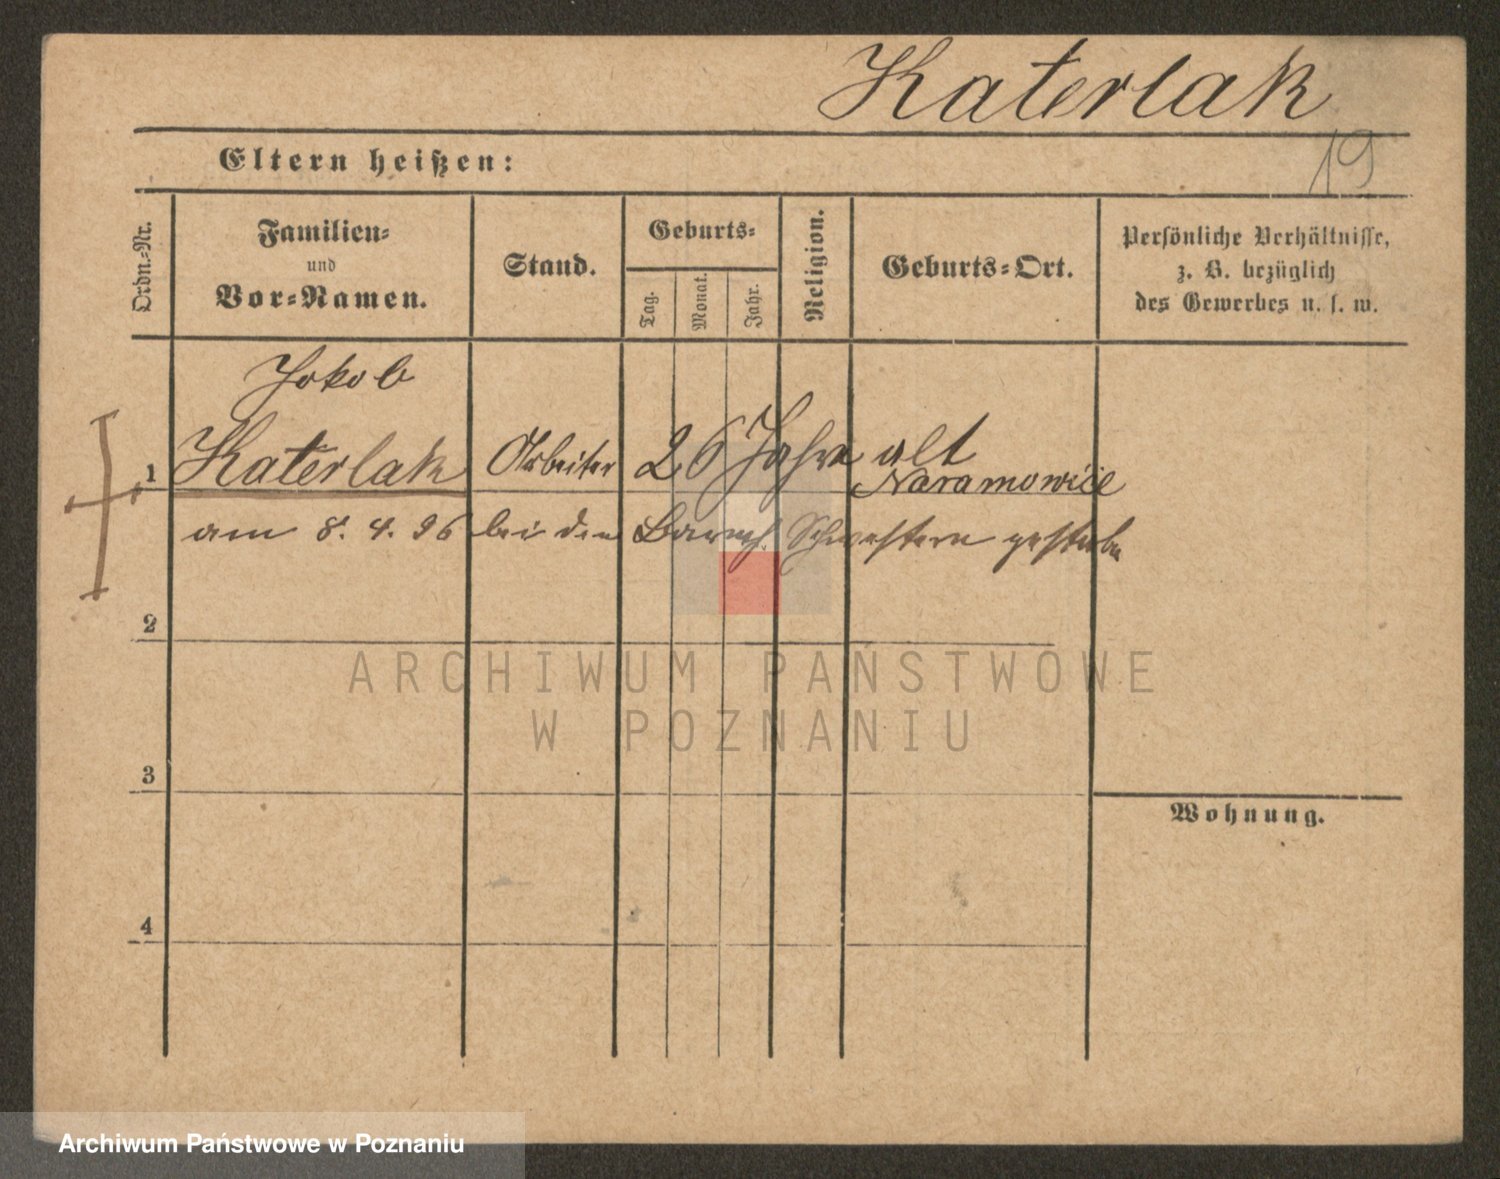 Katerlak
19
Eltern heißen:
Ordn.-Nr.
Familien-
und
Vor-Namen.
Stand.
Geburts-
Tag.
Monat.
Jahr.
Religion.
Geburts-Ort.
Persönliche Verhältnisse,
z. B. bezüglich
des Gewerbes u. s. w.
Jakob
1 Katerlak Arbeiter 26 Jahre alt
Naramowice
am 8. 4. 96 bei den Barmh. Schwestern gestorben
2
3
4
Wohnung.
ARCHIWUM PAŃSTWOWE
W POZNANIU
Archiwum Państwowe w Poznaniu